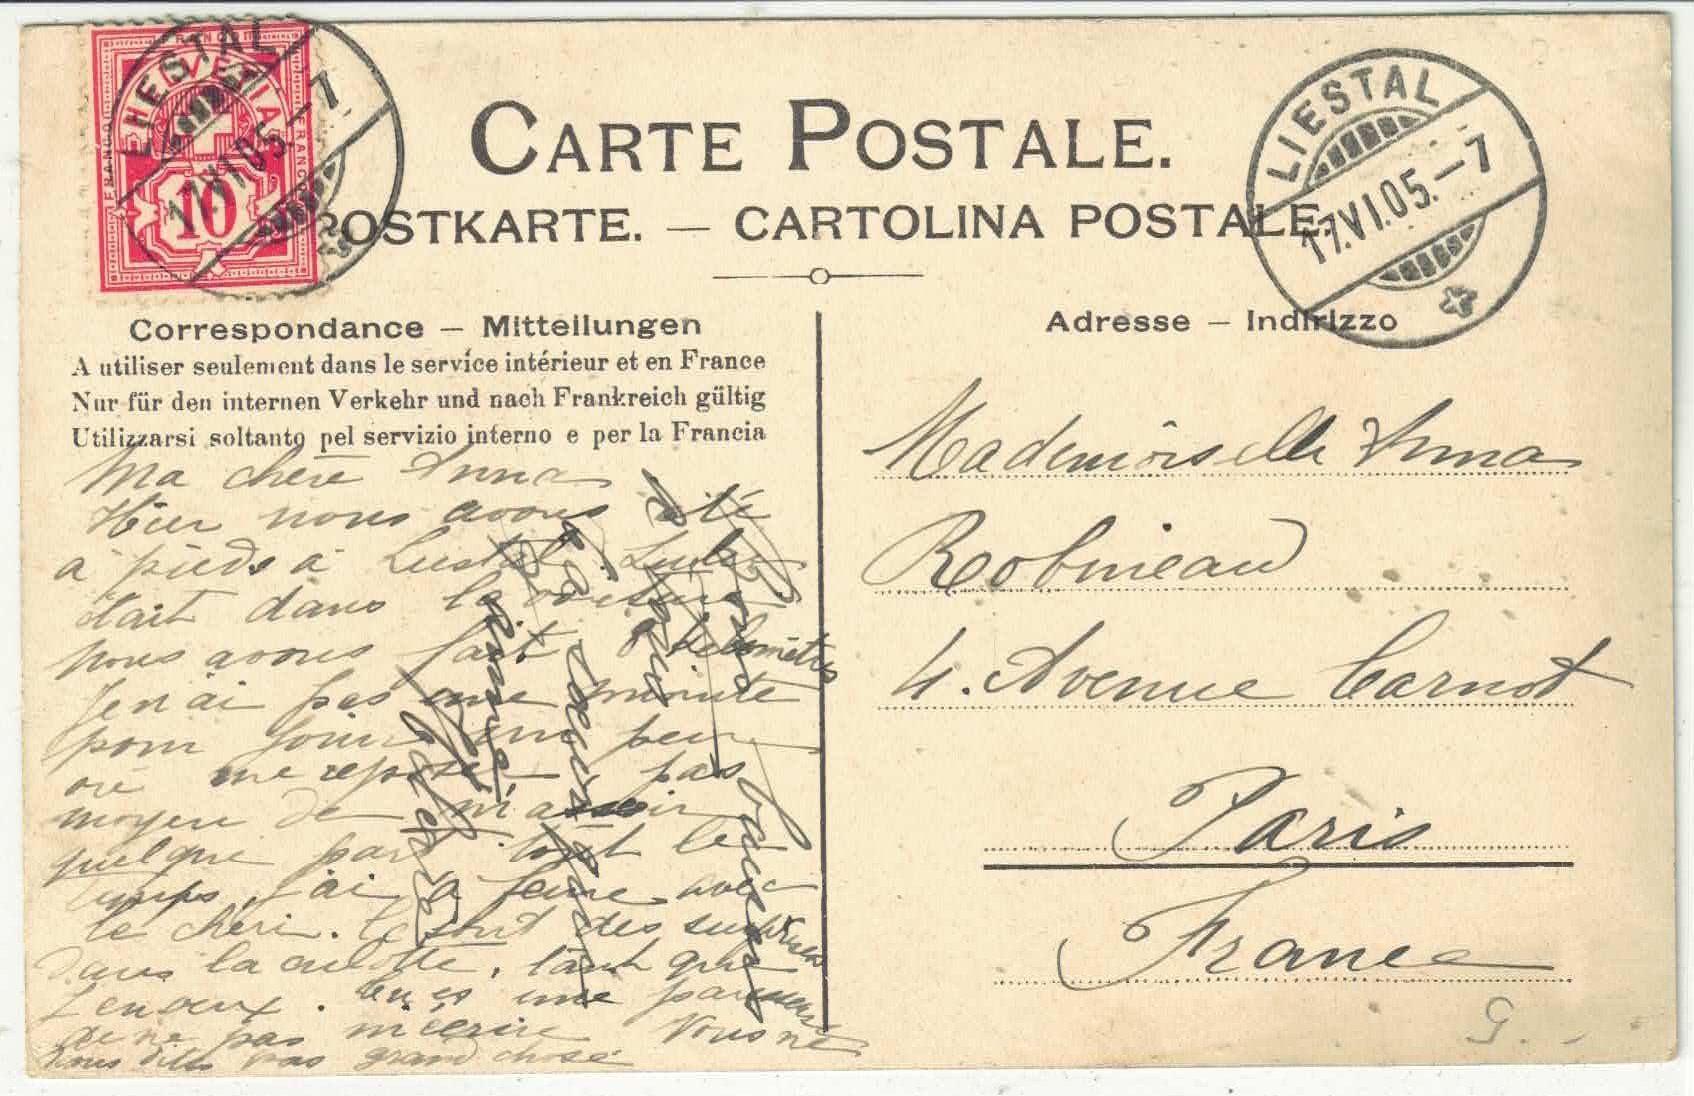 FRANCO
HELVETIA
FRANCO
FRANCO
10
LIESTAL
17.VI.05.–7
LIESTAL
17.VI.05.–7
CARTE POSTALE.
POSTKARTE. — CARTOLINA POSTALE.
Correspondance — Mitteilungen
A utiliser seulement dans le service intérieur et en France
Nur für den internen Verkehr und nach Frankreich gültig
Utilizzarsi soltanto pel servizio interno e per la Francia
Adresse — Indirizzo
Ma chère Anna
Hier nous avons été
à pieds à Liestal.
était dans la voiture
nous avons fait 8 kilomètres
Je n'ai pas une minute
pour
me reposer pas
moyen de m'assoir
quelque part tout le
temps, j'ai à faire avec
le chéri. Ce sont des
dans la culotte, tant que
j'en veux. tu es une
de ne pas m'écrire Vous ne
nous dites pas grand chose
Mademoiselle Anna
Robineau
4. Avenue Carnot
Paris
France
G.